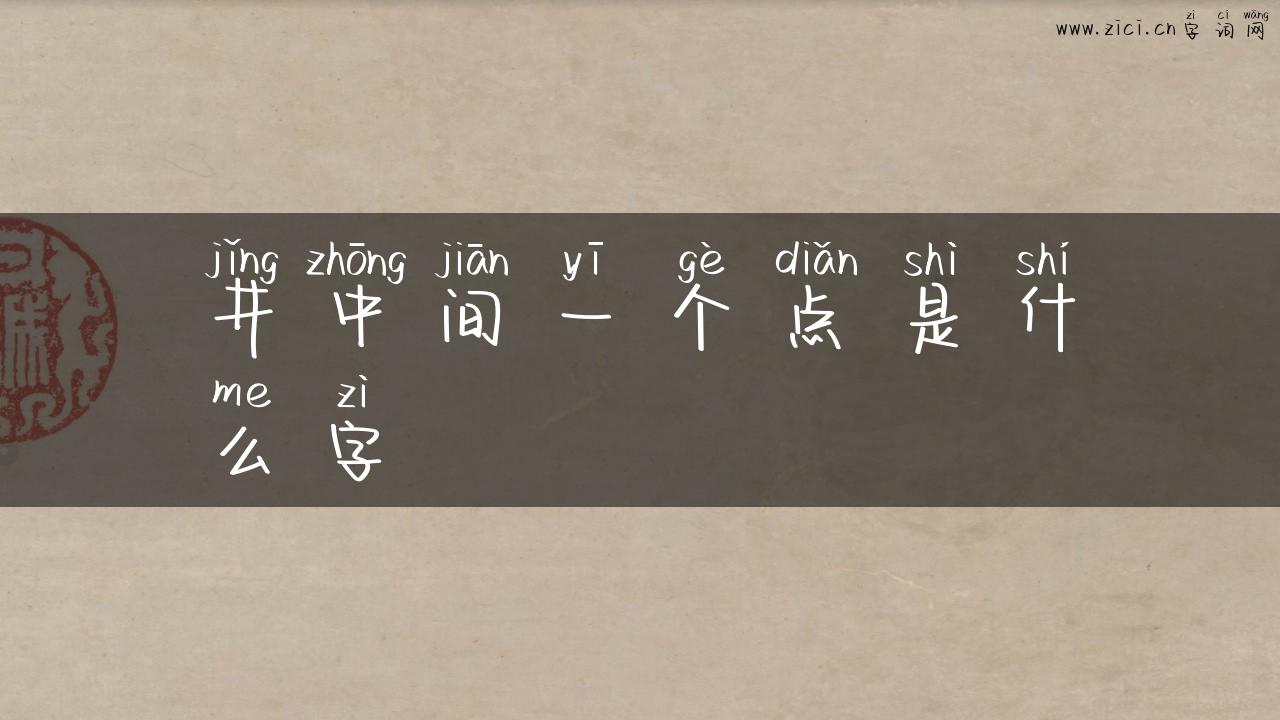 zì cí wǎng
www.zici.cn 字词网
jǐng zhōng jiān yī gè diǎn shì shí
井中间一个点是什
me zì
么字